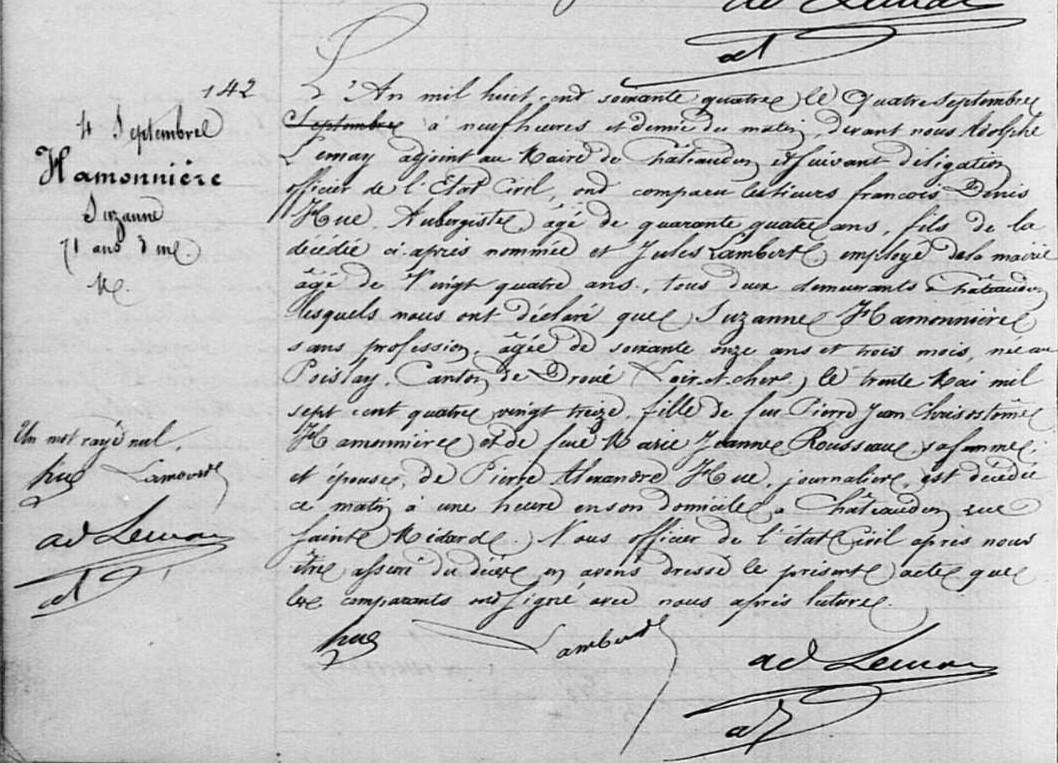 142
4 Septembre
Hamonnière
Suzanne
71 ans 3 m.
L'An mil huit cent soixante quatre le quatre septembre
Septembre à neuf heures et demie du matin, devant nous Adolphe
Lemay adjoint au Maire de Châteaudun et suivant déligation
officier de l'Etat Civil, ont comparu les sieurs francois Denis
Hue, Aubergiste âgé de quarante quatre ans, fils de la
décédée ci-après nommée et Jules Lambert employé de la mairie
âgé de Vingt quatre ans, tous deux demeurants à Châteaudun
lesquels nous ont déclaré que Suzanne Hamonnière
sans profession, âgée de soixante onze ans et trois mois, née au
Poislay, Canton de Droué Loir-et-cher, le trente Mai mil
sept cent quatre vingt treize, fille de feu Pierre Jean Chrisostôme
Hamonnière et de feue Marie Jeanne Rousseau, sa femme,
et épouse, de Pierre Alexandre Hue, journalier, est décédée
ce matin à une heure en son domicile à Châteaudun rue
Saint Médard. Nous officier de l'état Civil après nous
être assuré du décès en avons dressé le présent acte que
les comparants ont signé avec nous après lecture.
Un mot rayé nul.
hue Lambert
ad Lemay
hue Lambert
ad Lemay